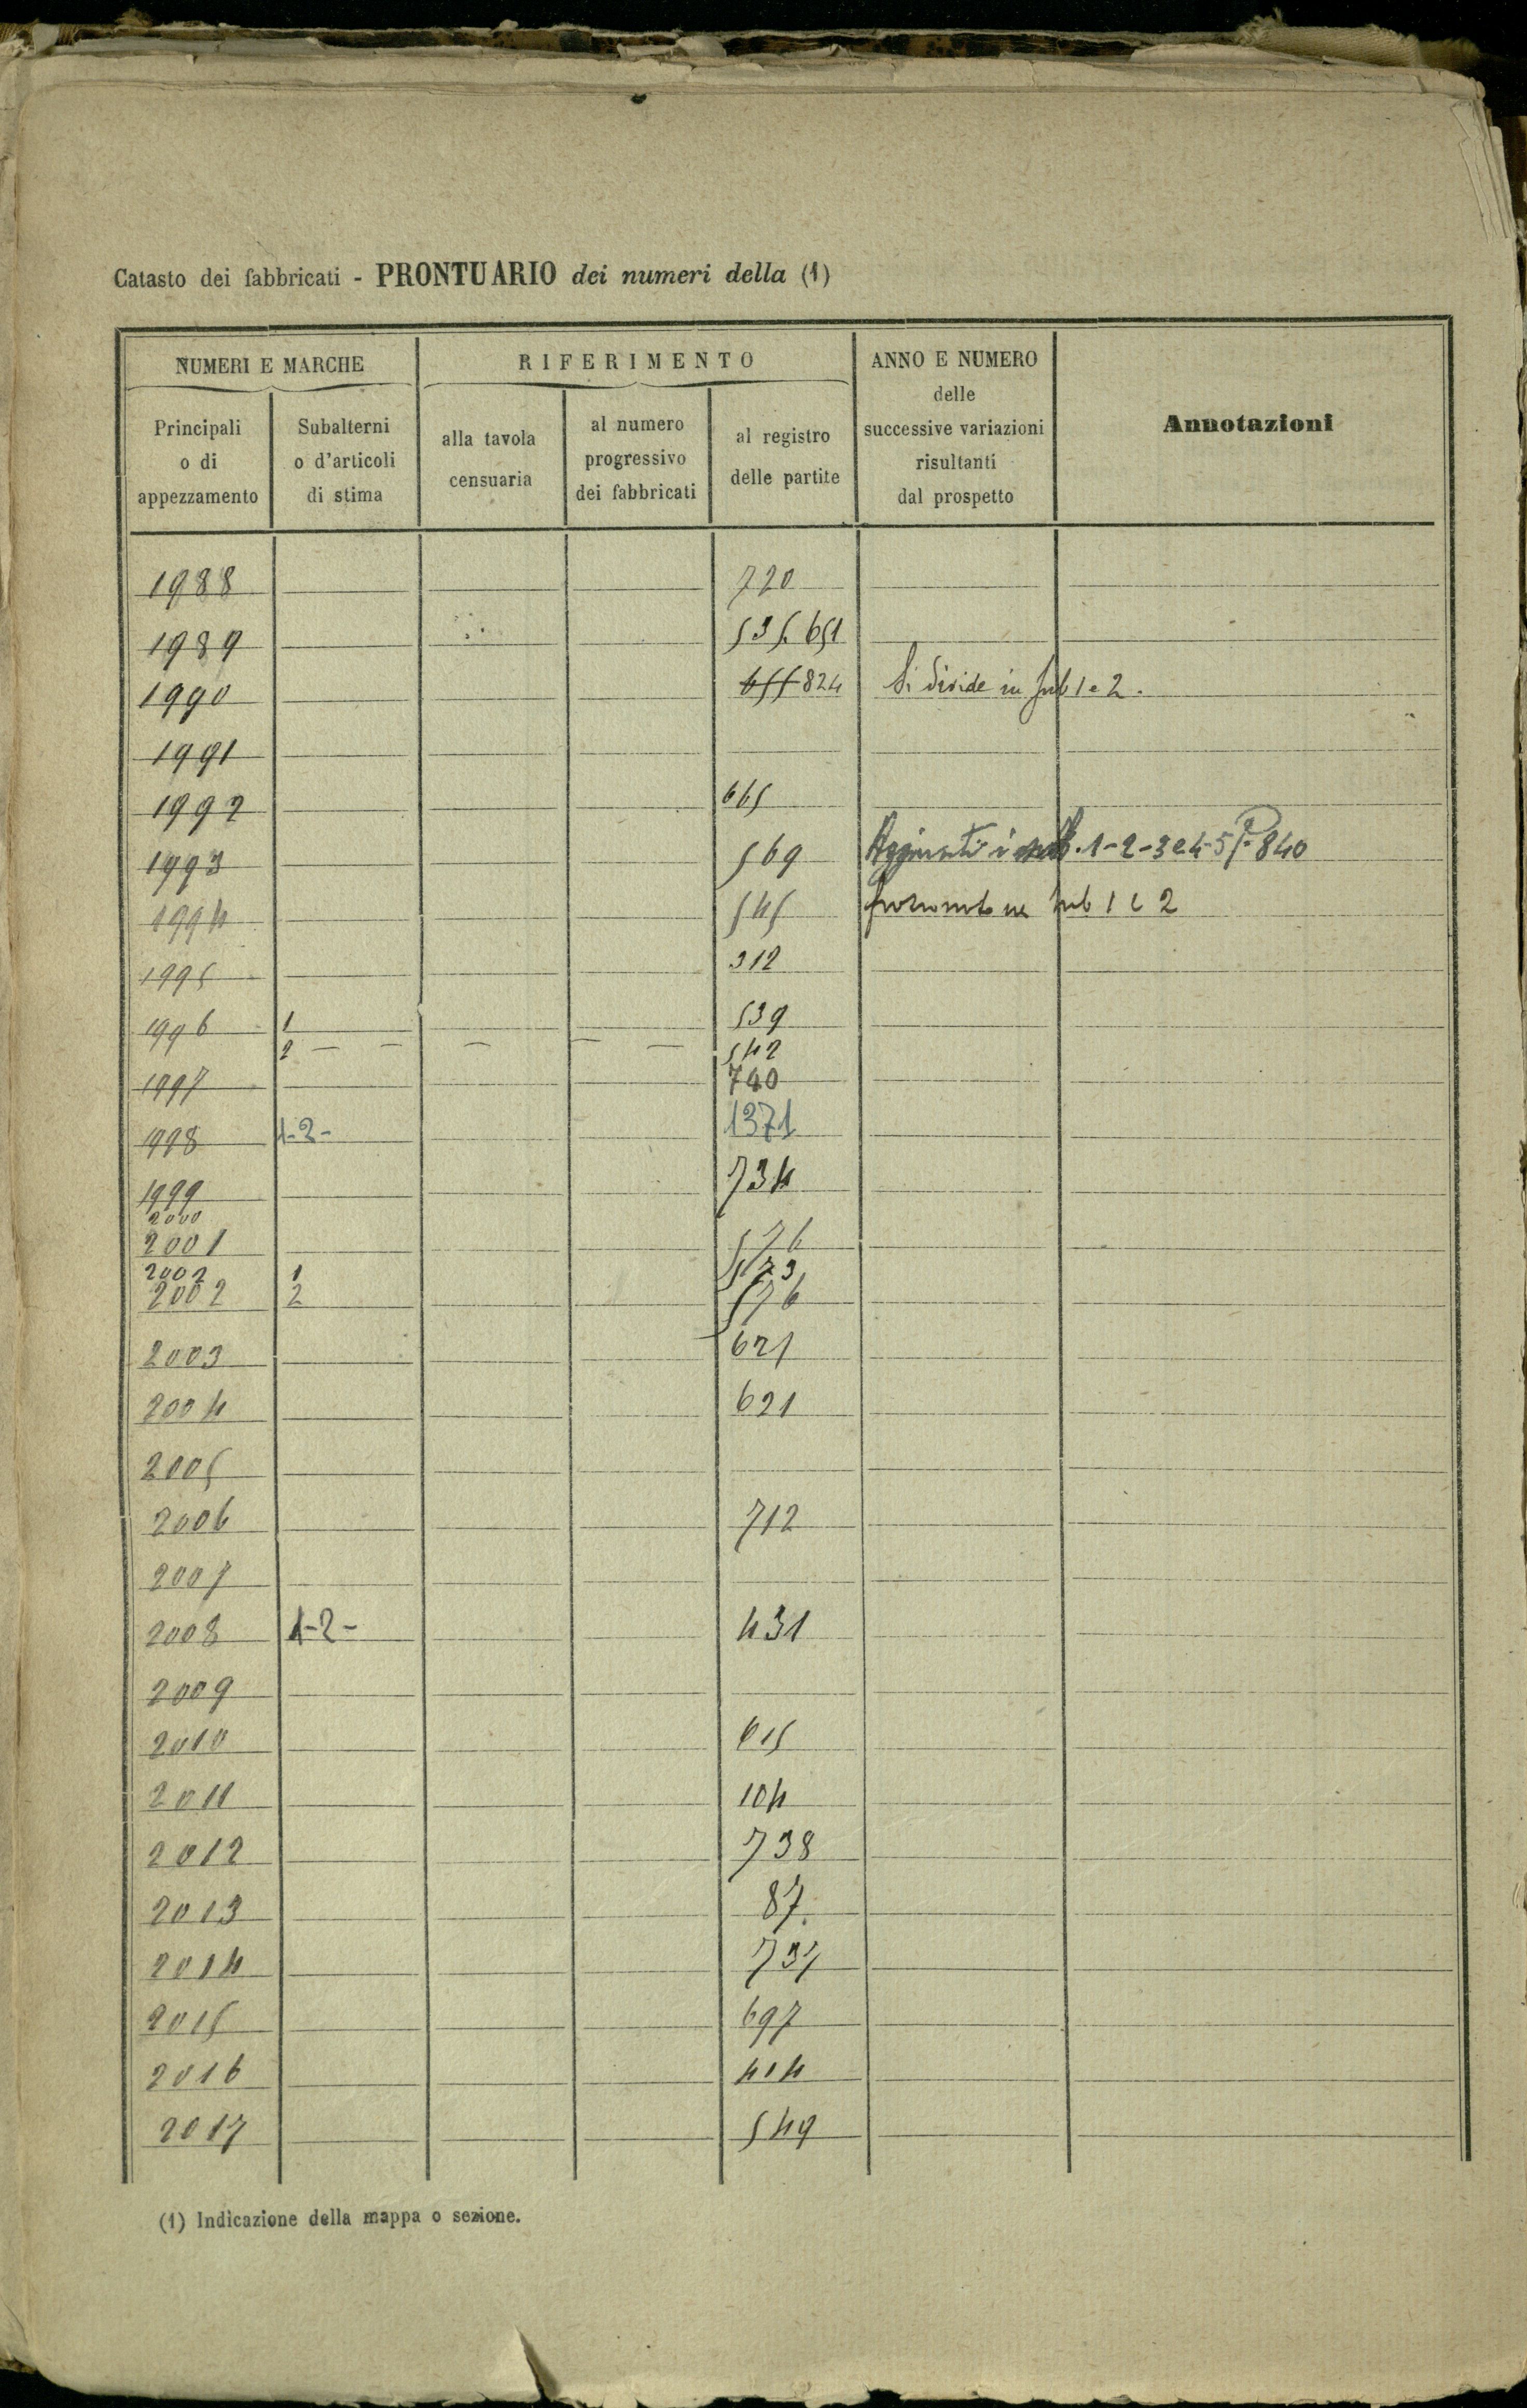 Catasto dei fabbricati - PRONTUARIO dei numeri della (1)
NUMERI E MARCHE
RIFERIMENTO
ANNO E NUMERO
delle
successive variazioni
risultanti
dal prospetto
Annotazioni
Principali
o di
appezzamento
Subalterni
o d'articoli
di stima
alla tavola
censuaria
al numero
progressivo
dei fabbricati
al registro
delle partite
1988 720
1989 535. 651
1990 655 824 Si divide in sub 1 e 2.
1991
1992 665
1993 569 Aggiunti i sub. 1-2-3 e 4-5 P. 840
1994 545 sub 1 e 2
1995 312
1996 1 539
2 542
1997 740
1998 1-2- 1371
1999 734
2000
2001 576
2002 1 573
2002 2 576
2003 621
2004 621
2005
2006 712
2007
2008 1-2- 431
2009
2010 615
2011 104
2012 738
2013 87.
2014 737
2015 697
2016 414
2017 549
(1) Indicazione della mappa o sezione.